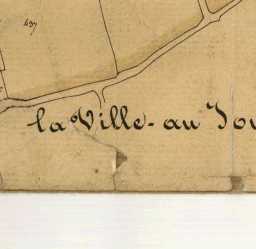 437
la Ville-au Jou